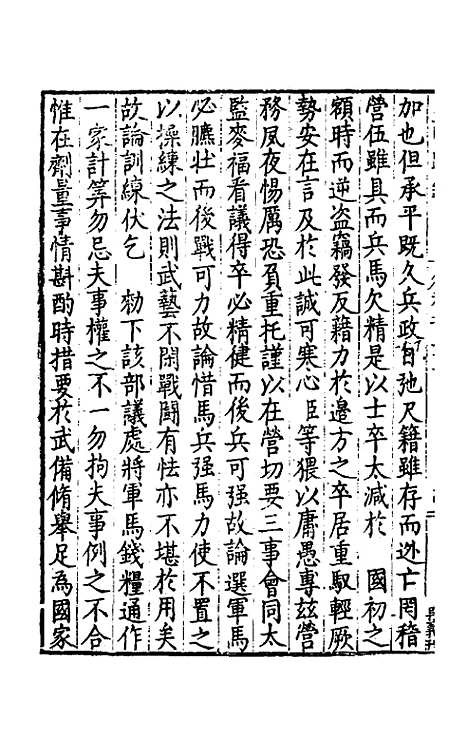 加也但承平既久兵政日弛尺籍雖存而逃亡罔稽
營伍雖具而兵馬欠精是以士卒太減於　國初之
額時而逆盜竊發反藉力於邊方之卒居重馭輕厥
勢安在言及於此誠可寒心臣等猥以庸愚專茲營
務夙夜惕厲恐負重托謹以在營切要三事會同太
監麥福看議得卒必精健而後兵可强故論選軍馬
必臕壯而後戰可力故論惜馬兵强馬力使不置之
以操練之法則武藝不閑戰鬪有怯亦不堪於用矣
故論訓練伏乞　勑下該部議處將軍馬錢糧通作
一家計筭勿忌夫事權之不一勿拘夫事例之不合
惟在劑量事情斟酌時措要於武備脩舉足爲國家